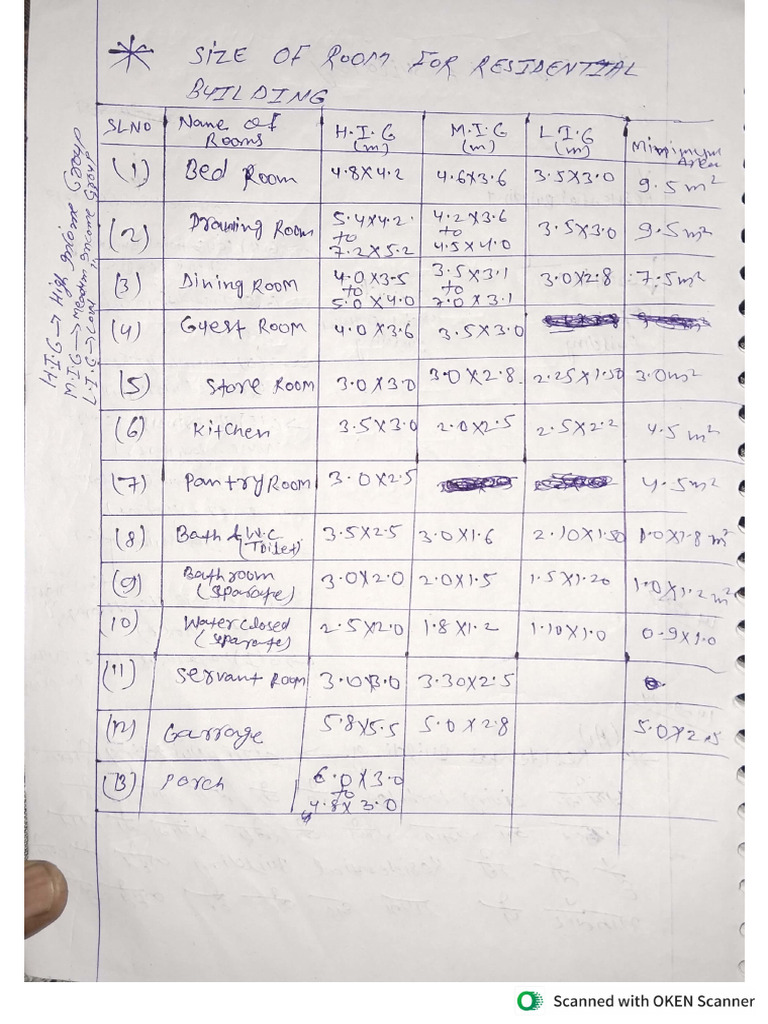 * SIZE OF ROOM FOR RESIDENTIAL
BUILDING
SLNO Name of Rooms H.I.G (m) M.I.G (m) L.I.G (m) Minimum Area
(1) Bed Room 4.8X4.2 4.6X3.6 3.5X3.0 9.5m²
(2) Drawing Room 5.4X4.2 to 7.2X5.2 4.2X3.6 to 4.5X4.0 3.5X3.0 9.5m²
(3) Dining Room 4.0X3.5 to 5.0X4.0 3.5X3.1 to 7.0X3.1 3.0X2.8 7.5m²
(4) Guest Room 4.0X3.6 3.5X3.0
(5) Store Room 3.0X3.0 3.0X2.8 2.25X1.50 3.0m²
(6) Kitchen 3.5X3.0 2.0X2.5 2.5X2.2 4.5m²
(7) Pantry Room 3.0X2.5 4.5m²
(8) Bath & W.C (Toilet) 3.5X2.5 3.0X1.6 2.10X1.50 1.0X1.8m²
(9) Bathroom (separate) 3.0X2.0 2.0X1.5 1.5X1.20 1.0X1.2m²
(10) Water closed (separate) 2.5X2.0 1.8X1.2 1.10X1.0 0.9X1.0
(11) Servant Room 3.0X3.0 3.30X2.5
(12) Garrage 5.8X5.5 5.0X2.8 5.0X2.5
(13) Porch 6.0X3.0 to 4.8X3.0
H.I.G → High Income Group
M.I.G → Income Group
L.I.G → Income Group
Scanned with OKEN Scanner